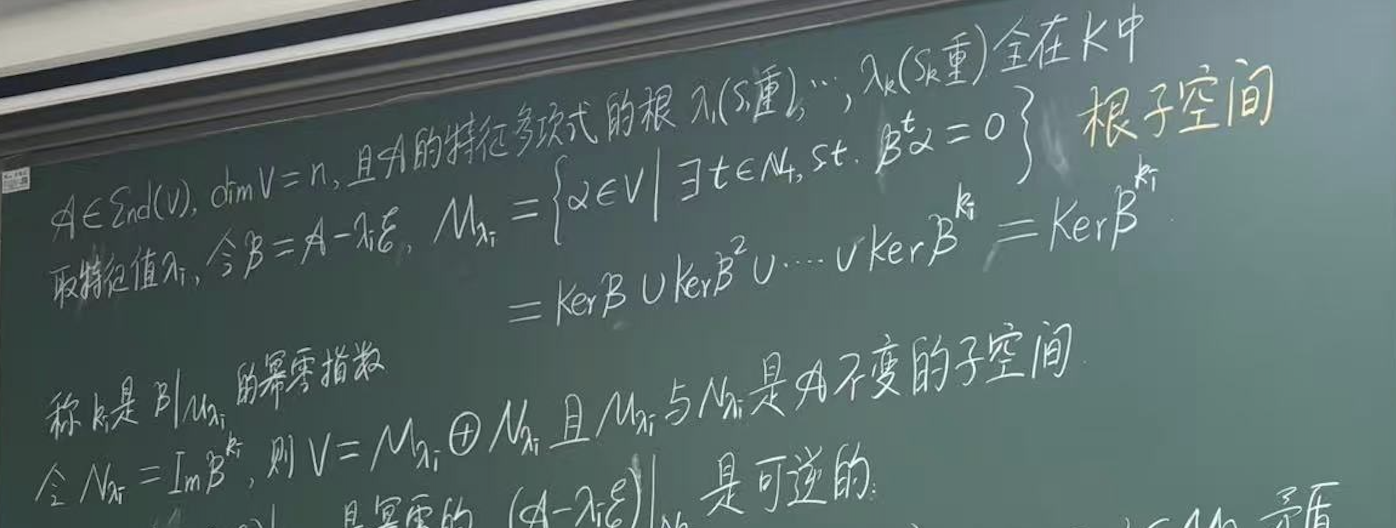 𝒜∈End(V), dimV=n, 且𝒜的特征多项式的根 λ₁(S₁重), ⋯, λₖ(Sₖ重)全在K中
取特征值λᵢ, 令ℬ=𝒜-λᵢℰ, M_{λᵢ} = {α∈V | ∃t∈N₊, s.t. ℬᵗα=0} 根子空间
= Kerℬ ∪ Kerℬ² ∪ ⋯ ∪ Kerℬ^{kᵢ} = Kerℬ^{kᵢ}
称kᵢ是 ℬ|_{M_{λᵢ}} 的幂零指数
令 N_{λᵢ} = Imℬ^{kᵢ}, 则 V = M_{λᵢ} ⊕ N_{λᵢ} 且 M_{λᵢ} 与 N_{λᵢ} 是𝒜不变的子空间.
是幂零的 (𝒜-λᵢℰ)| 是可逆的: 矛盾